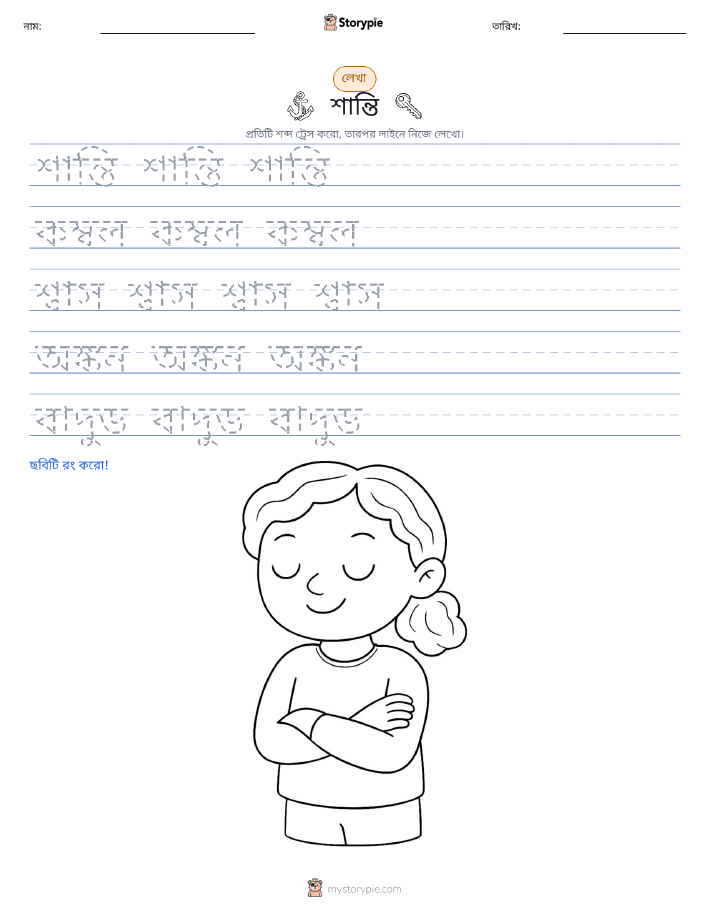 নাম: Storypie তারিখ:
লেখা
শান্তি
প্রতিটি শব্দ ট্রেস করো, তারপর লাইনে নিজে লেখো।
শান্তি শান্তি শান্তি
কম্বল কম্বল কম্বল
শ্বাস শ্বাস শ্বাস শ্বাস
অঙ্কন অঙ্কন অঙ্কন
বাদুড় বাদুড় বাদুড়
ছবিটি রং করো!
mystorypie.com